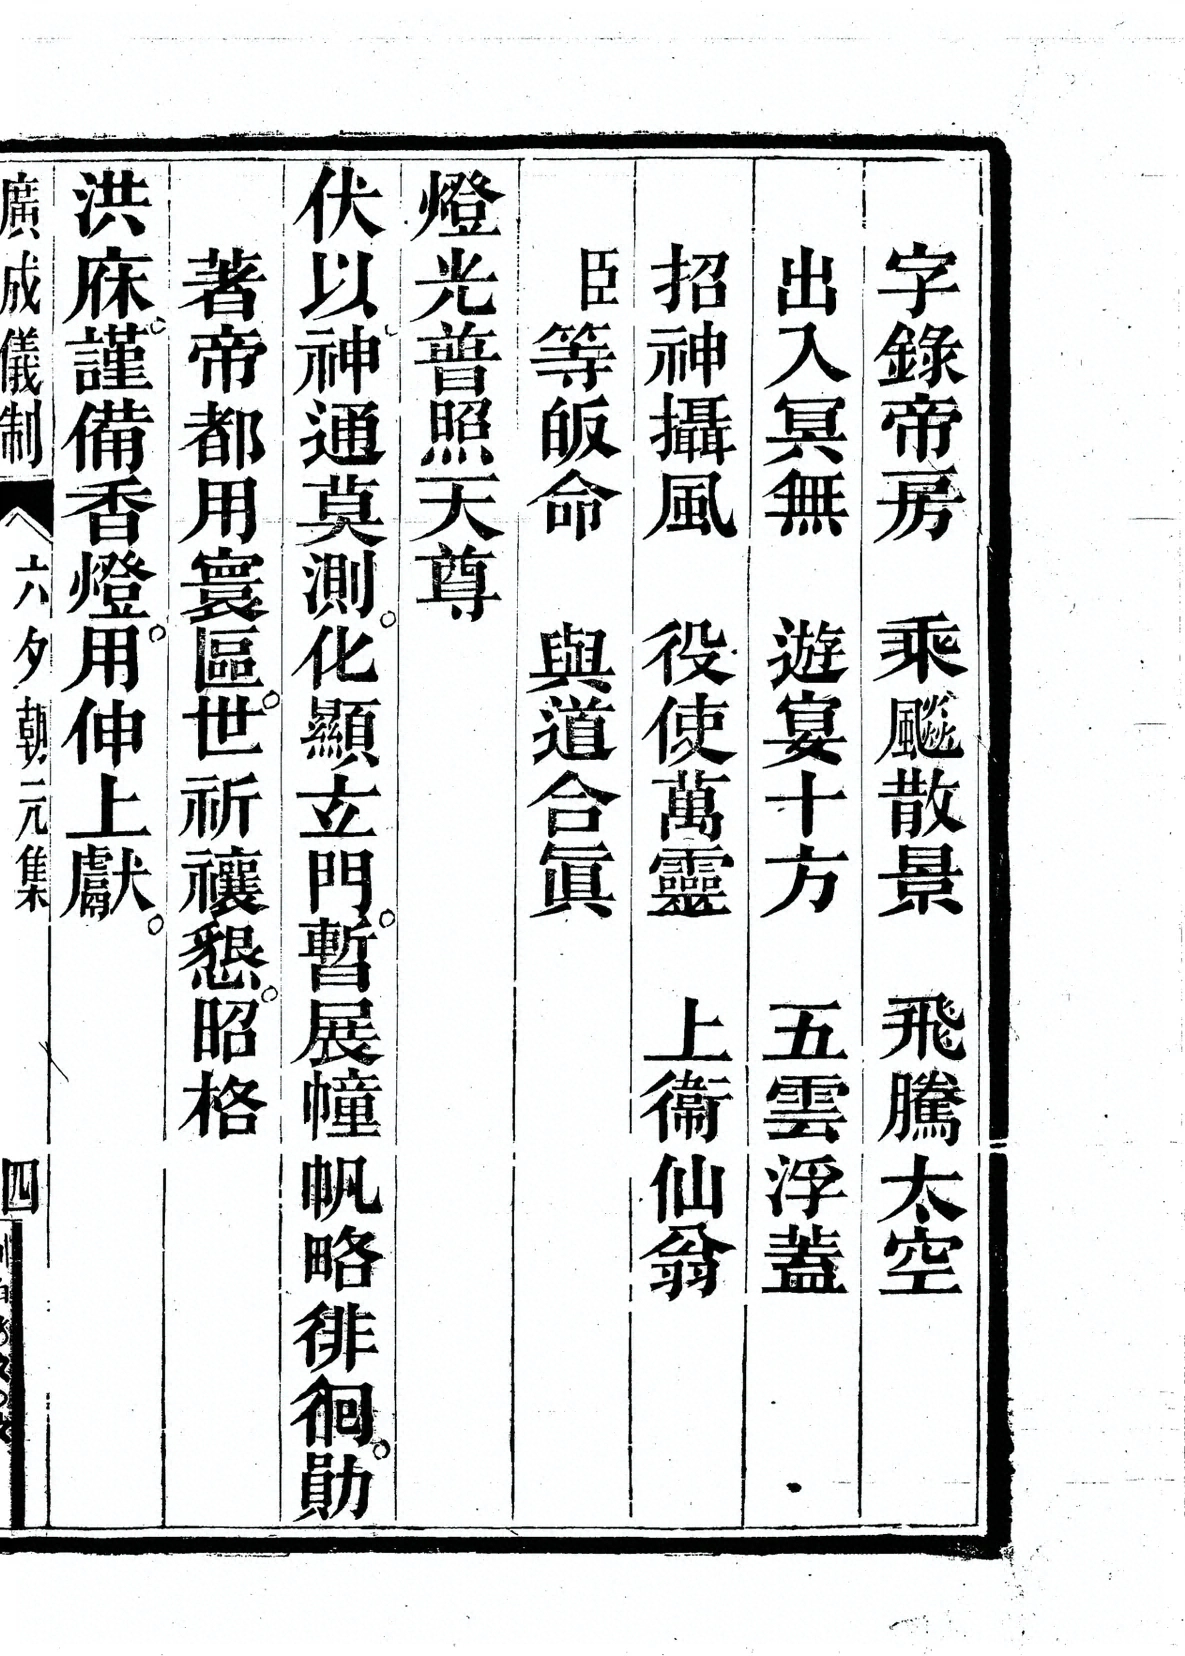 字錄帝房　乘飈散景　飛騰太空
出入冥無　遊宴十方　五雲浮蓋
招神攝風　役使萬靈　上衞仙翁
臣等皈命　與道合眞
燈光普照天尊
伏以神通莫測。化顯玄門。暫展幢帆略徘徊。勛
著帝都用寰區。世祈禳懇。昭格
洪庥。謹備香燈。用伸上獻。
廣成儀制　六夕朝元集　四